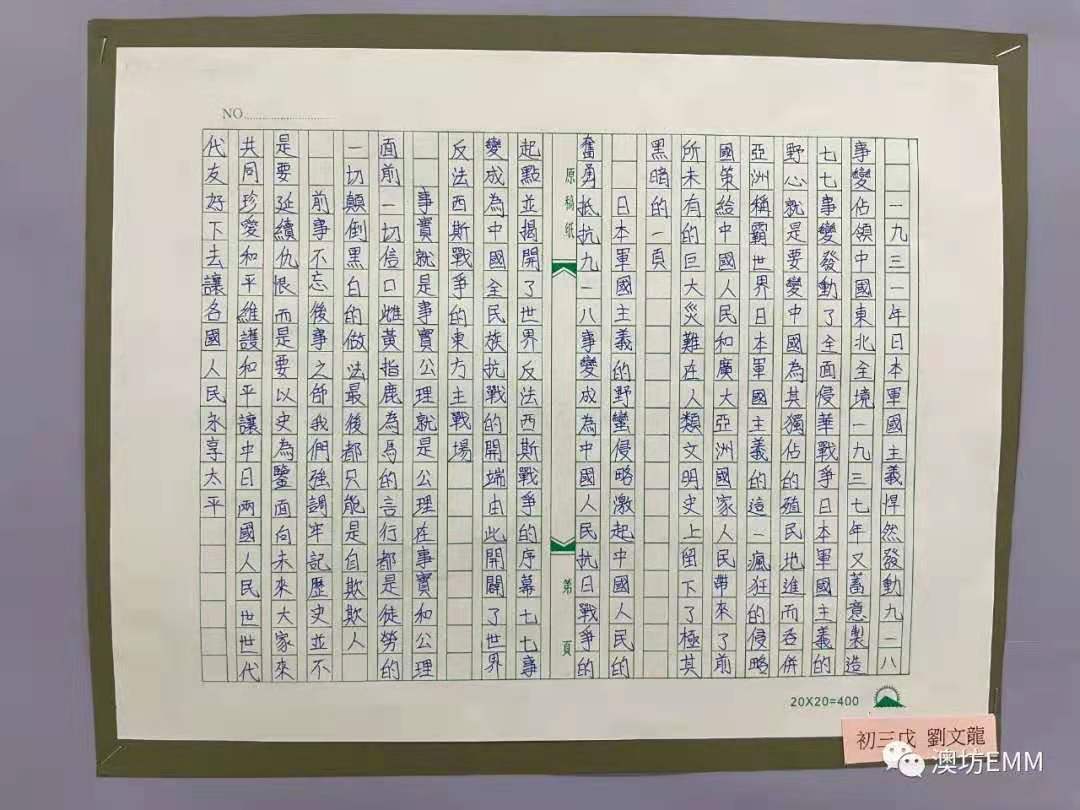 NO
一九三一年日本軍國主義悍然發動九一八
事變佔領中國東北全境一九三七年又蓄意製造
七七事變發動了全面侵華戰爭日本軍國主義的
野心就是要變中國為其獨佔的殖民地進而吞併
亞洲稱霸世界日本軍國主義的這一瘋狂的侵略
國策給中國人民和廣大亞洲國家人民帶來了前
所未有的巨大災難在人類文明史上留下了極其
黑暗的一頁
日本軍國主義的野蠻侵略激起中國人民的
奮勇抵抗九一八事變成為中國人民抗日戰爭的
原稿紙
第 頁
起點並揭開了世界反法西斯戰爭的序幕七七事
變成為中國全民族抗戰的開端由此開闢了世界
反法西斯戰爭的東方主戰場
事實就是事實公理就是公理在事實和公理
面前一切信口雌黃指鹿為馬的言行都是徒勞的
一切顛倒黑白的做法最後都只能是自欺欺人
前事不忘後事之師我們強調牢記歷史並不
是要延續仇恨而是要以史為鑒面向未來大家來
共同珍愛和平維護和平讓中日兩國人民世世代
代友好下去讓各國人民永享太平
20X20=400
初三戊 劉文龍
澳坊EMM